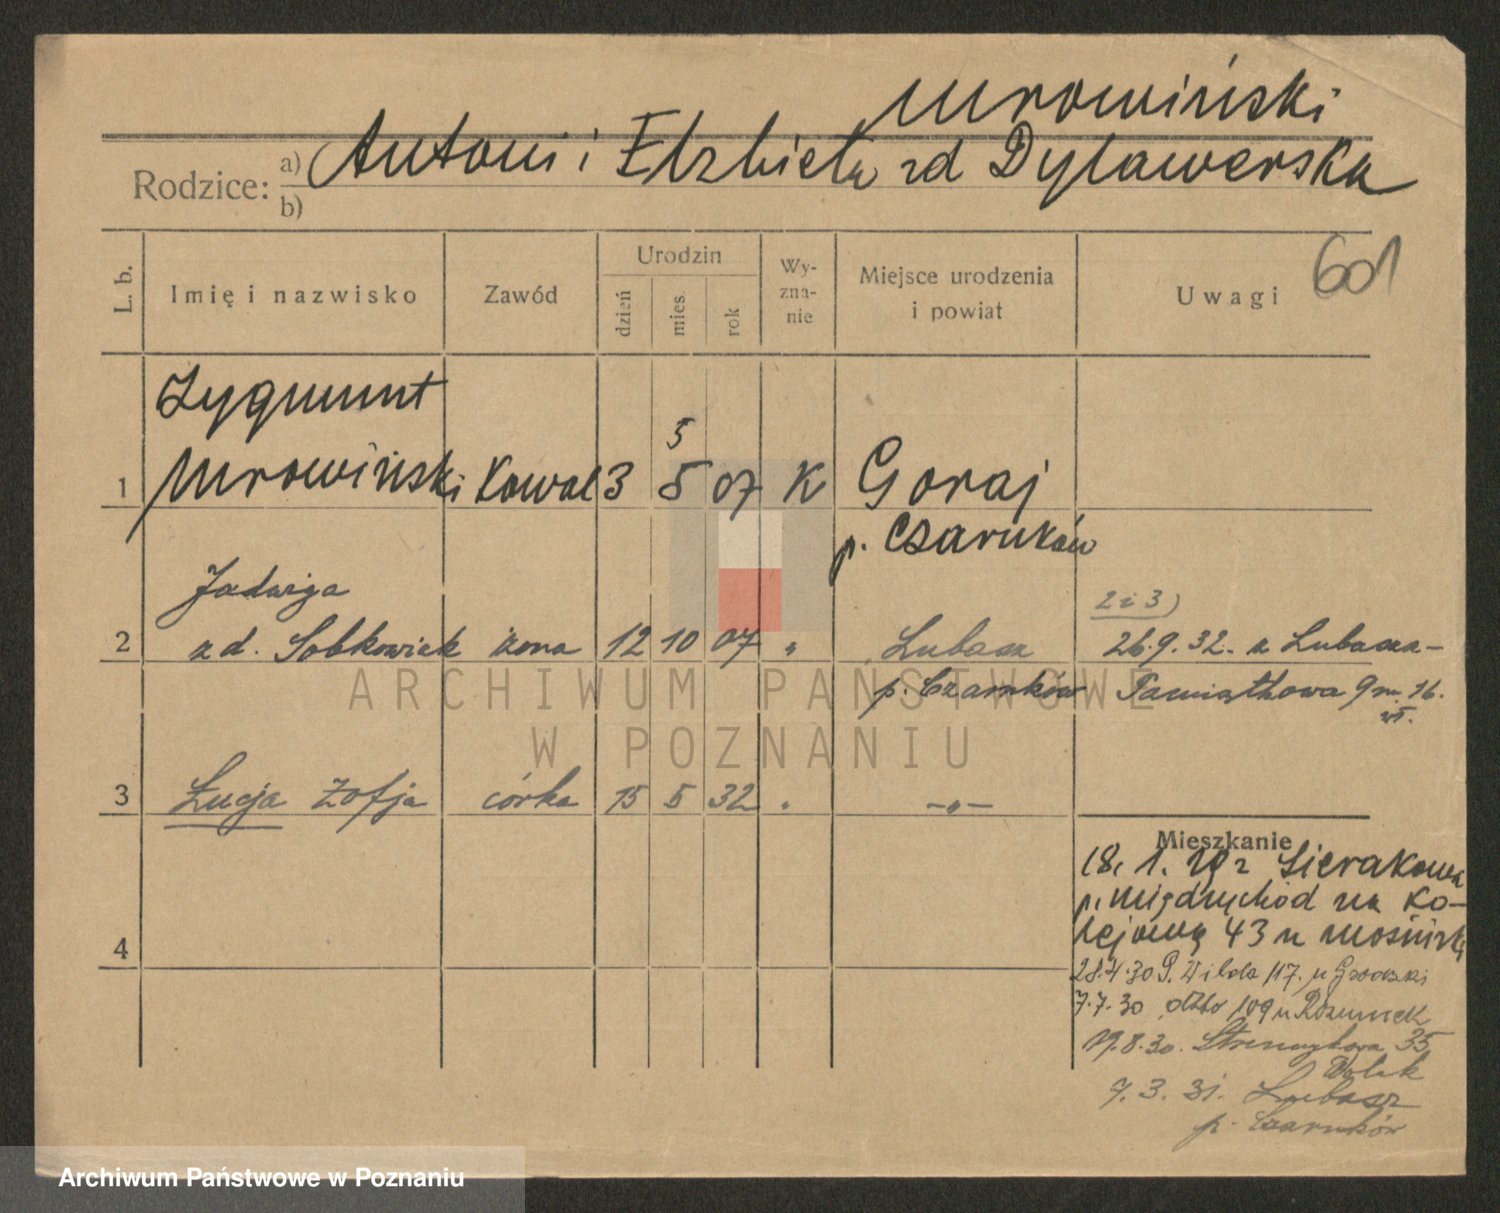 Mrowiński
Rodzice: a) Antoni i Elzbieta zd Dylawerska
b)
601
L. b.
Imię i nazwisko
Zawód
Urodzin
dzień
mies.
rok
Wy-
zna-
nie
Miejsce urodzenia
i powiat
Uwagi
Zygmunt
5
1 Mrowiński Kowal 3 5 07 K Goraj
p. Czarnków
Jadwiga
2 i 3)
2 zd. Sobkowiak żona 12 10 07 " Lubasz 26.9.32. z Lubasza-
p. Czarnków Pamiątkowa 9 m. 16.
3 Łucja Zofja córka 15 5 32 " -"-
Mieszkanie
18. 1. r Sierakowa
p. Międzychód na Ko-
lejową 43 u
4
28.4.30 117. u
7.7.30 109 u
19.8.30. 35
7. 3. 31. Lubasz
p. Czarnków
ARCHIWUM PAŃSTWOWE
W POZNANIU
Archiwum Państwowe w Poznaniu